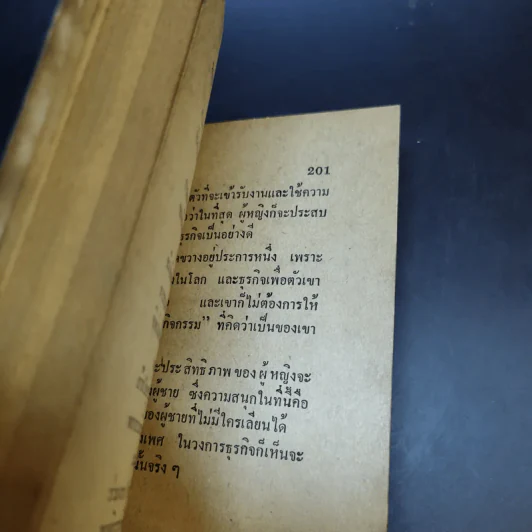 201
ตัวที่จะเข้ารับงานและใช้ความ
ว่าในที่สุด ผู้หญิงก็จะประสบ
ธุรกิจเป็นอย่างดี
ขวางอยู่ประการหนึ่ง เพราะ
ในโลก และธุรกิจเพื่อตัวเขา
และเขาก็ไม่ต้องการให้
กิจกรรม” ที่คิดว่าเป็นของเขา
ประสิทธิภาพของผู้หญิงจะ
ผู้ชาย ซึ่งความสนุกในที่นี้คือ
ของผู้ชายที่ไม่มีใครเลียนได้
เพศ ในวงการธุรกิจก็เห็นจะ
นั้นจริง ๆ